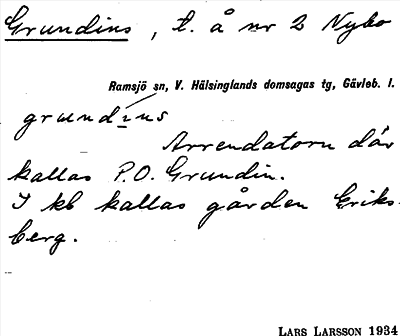 Grundins, t. å nr 2 Nybo
Ramsjö sn, V. Hälsinglands domsagas tg, Gävleb. l.
grundins
Arrendatorn där
kallas P.O. Grundin.
I kb kallas gården Eriks-
berg.
LARS LARSSON 1934